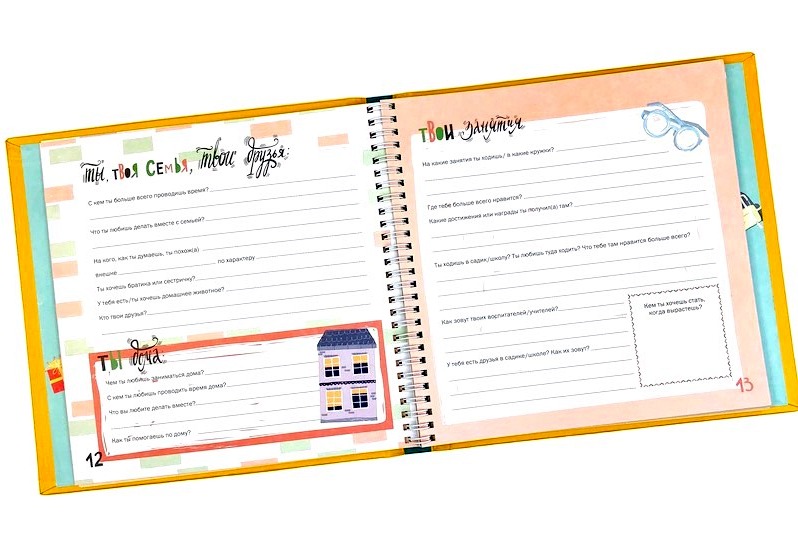 Ты, твоя семья, твои друзья:
С кем ты больше всего проводишь время?
Что ты любишь делать вместе с семьей?
На кого, как ты думаешь, ты похож(а)
внешне по характеру
Ты хочешь братика или сестричку?
У тебя есть/ты хочешь домашнее животное?
Кто твои друзья?
Ты дома:
Чем ты любишь заниматься дома?
С кем ты любишь проводить время дома?
Что вы любите делать вместе?
Как ты помогаешь по дому?
12
Твои занятия
На какие занятия ты ходишь/ в какие кружки?
Где тебе больше всего нравится?
Какие достижения или награды ты получил(а) там?
Ты ходишь в садик/школу? Ты любишь туда ходить? Что тебе там нравится больше всего?
Как зовут твоих воспитателей/учителей?
Кем ты хочешь стать,
когда вырастешь?
У тебя есть друзья в садике/школе? Как их зовут?
13